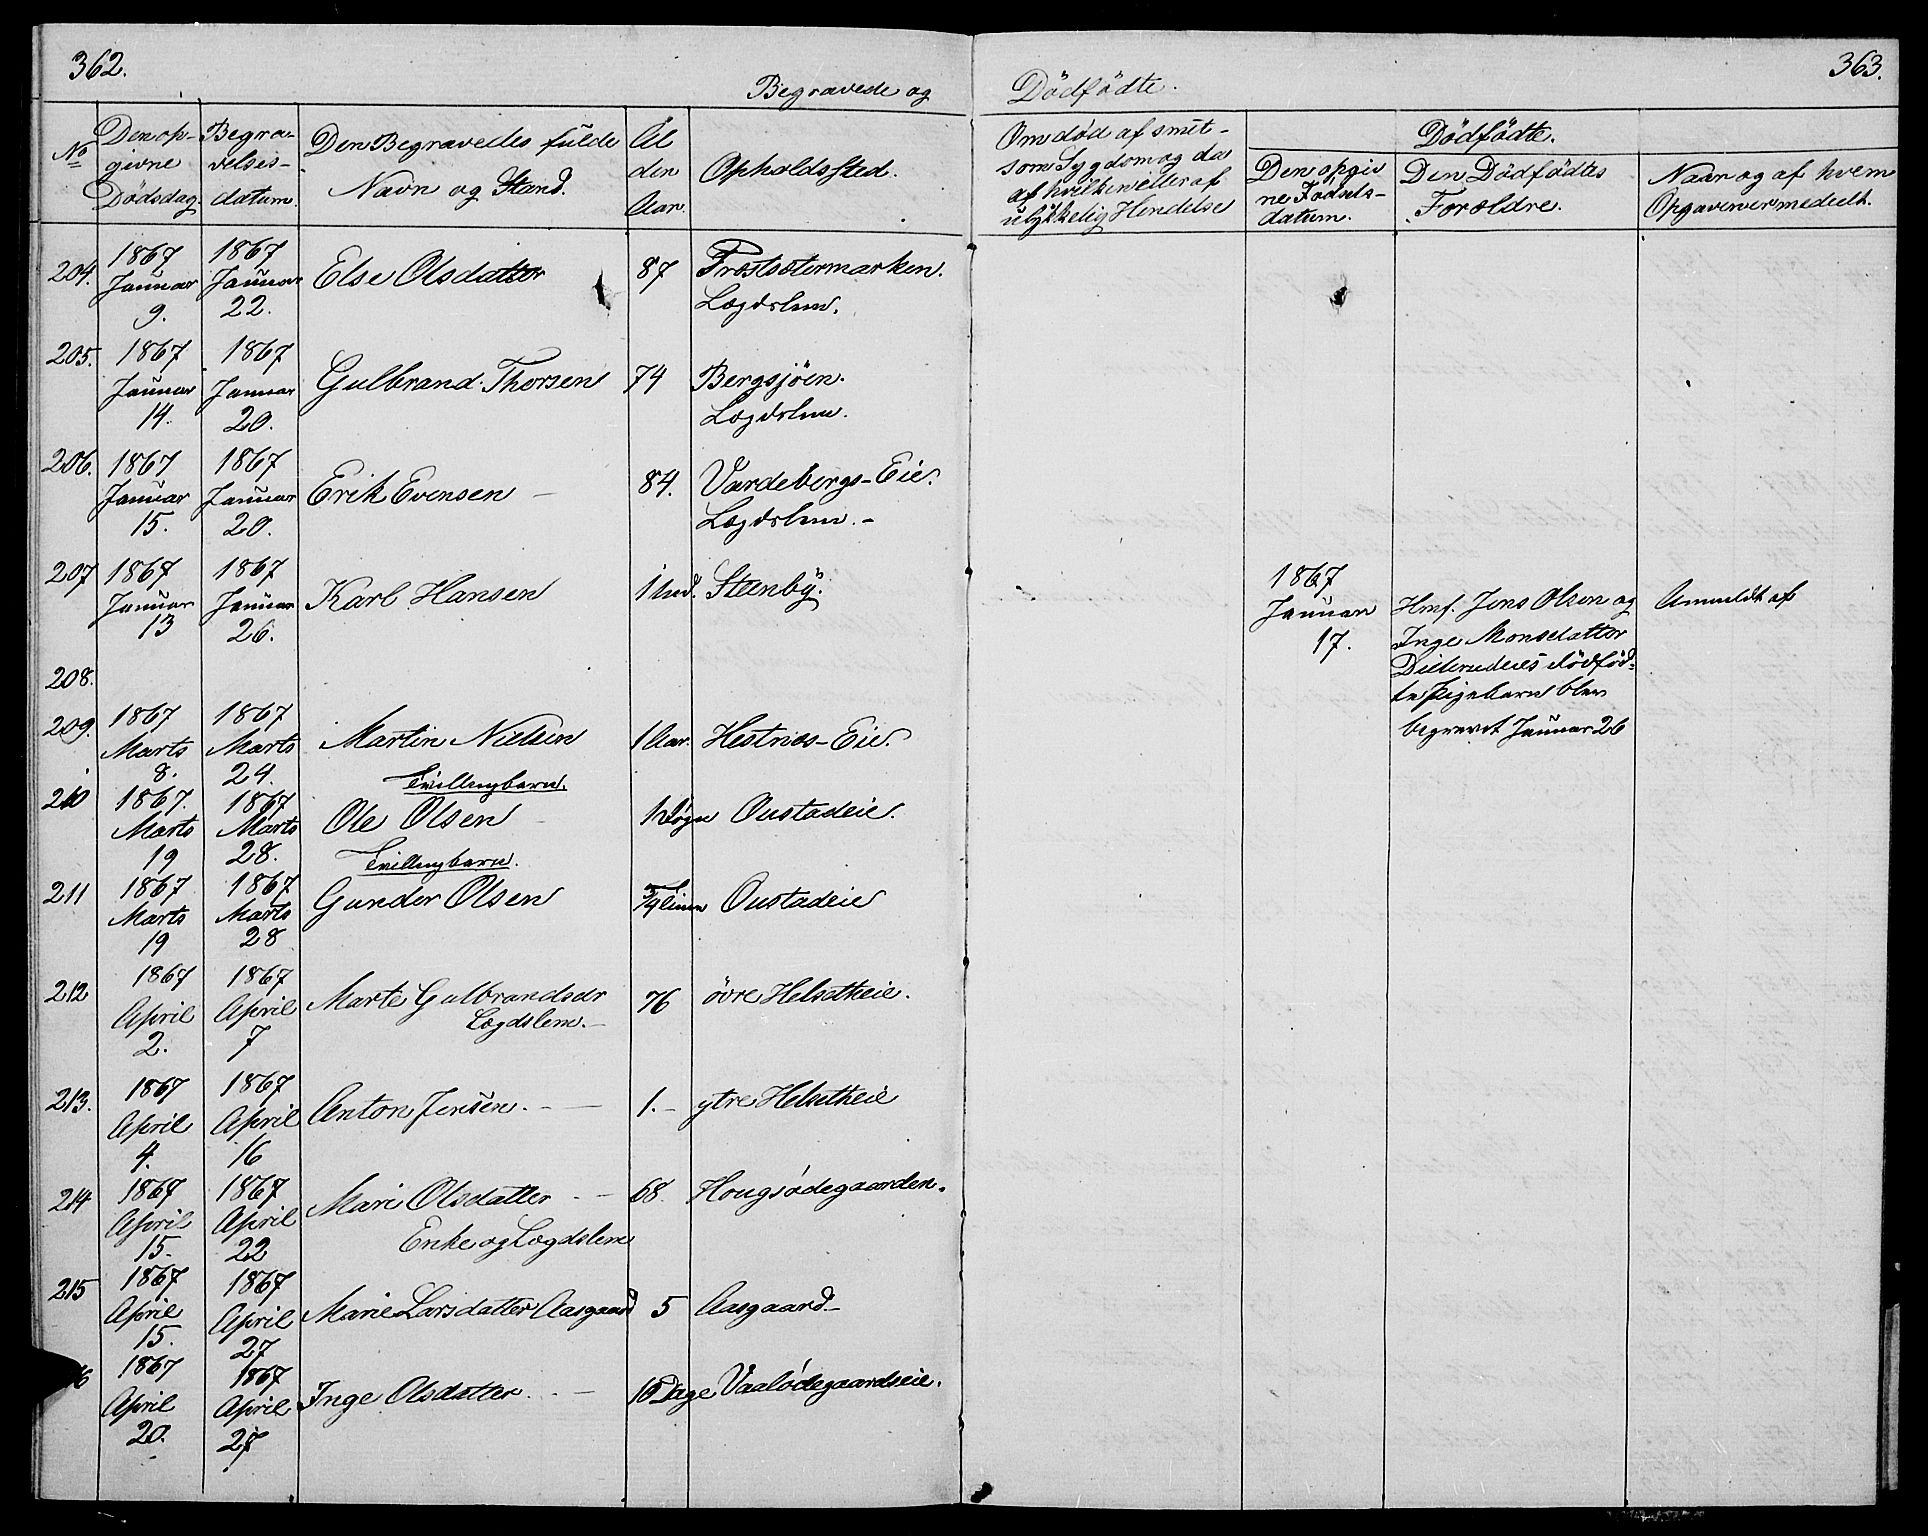 362.
Begravede og
Dödfödte.
363.
No
Den op-
givne
Dödsdag.
Begra-
velses-
datum.
Den Begravedes fulde
Navn og Stand.
Al
den
Aar.
OpholdsSted.
Om död af smit-
som Sygdom og da
af hvilken eller af
ulykkelig Hendelse
Dödfödte.
Den opgiv
ne Födsels-
datum.
Den Dödfödtes
Forældre.
Naar og af hvem
Opgaven er meddelt.
204. 1867 Januar 9. 1867 Januar 22. Else Olsdatter 87 Præstsætermarken.
Lægdslem.
205. 1867 Januar 14. 1867 Januar 20. Gulbrand Thorsen 74 Bergsjöen.
Lægdslem.
206. 1867 Januar 15. 1867 Januar 20. Erik Evensen – 84. Vardebergs-Eie.
Lægdslem. –
207 1867 Januar 13 1867 Januar 26. Karl Hansen 1 Steenby.
208.
1867
Januar
17.
Hmf. Jens Olsen og
Inge Monsdatter
dödföd-
te Pigebarn blev
begravet Januar 26
Anmeldt af
209. 1867 Marts 8. 1867 Marts 24. Martin Nielsen 1 Aar. Hestnæs-Eie.
Tvillingbarn.
210 1867. Marts 19 1867 Marts 28. Ole Olsen 1 Døgn Oustadeie.
Tvillingbarn.
211 1867 Marts 19 1867 Marts 28 Gunder Olsen Oustadeie
212 1867 April 2. 1867 April 7 Marte Gulbrandsdr 76 övre Helsetheie.
Lægdslem. –
213. 1867 April 4. 1867 April 16 Anton Jensen. – – 1. – ytre Helsetheie
214 1867 April 15. 1867 April 22 Mari Olsdatter – – 68. Hougsödegaarden.
Enke og Lægdslem
215 1867 April 15. 1867 April 27 Marie Larsdatter Aasgaard 5 Aasgaard –
6 1867 April 20. 1867 April 27 Inge Olsdatter. – – 10 Dage Vaalödegaardseie.